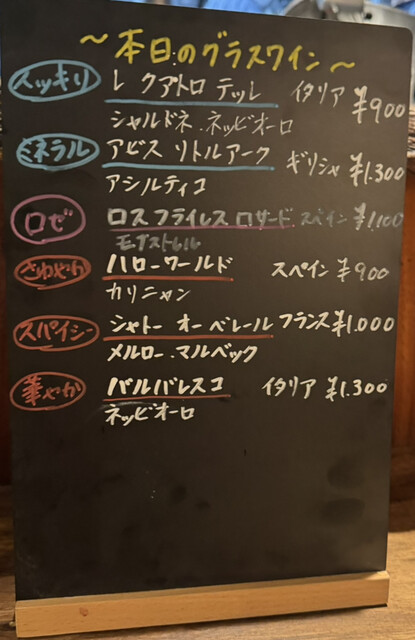 ~本日のグラスワイン~
スッキリ レ クアトロ テッレ イタリア ¥900
シャルドネ.ネッビオーロ
ミネラル アビス リトルアーク ギリシャ ¥1.300
アシルティコ
ロゼ ロス フライレス ロサード スペイン ¥1,100
モナストレル
さわやか ハローワールド スペイン ¥900
カリニャン
スパイシー シャトー オーベレール フランス ¥1.000
メルロー.マルベック
華やか バルバレスコ イタリア ¥1.300
ネッビオーロ